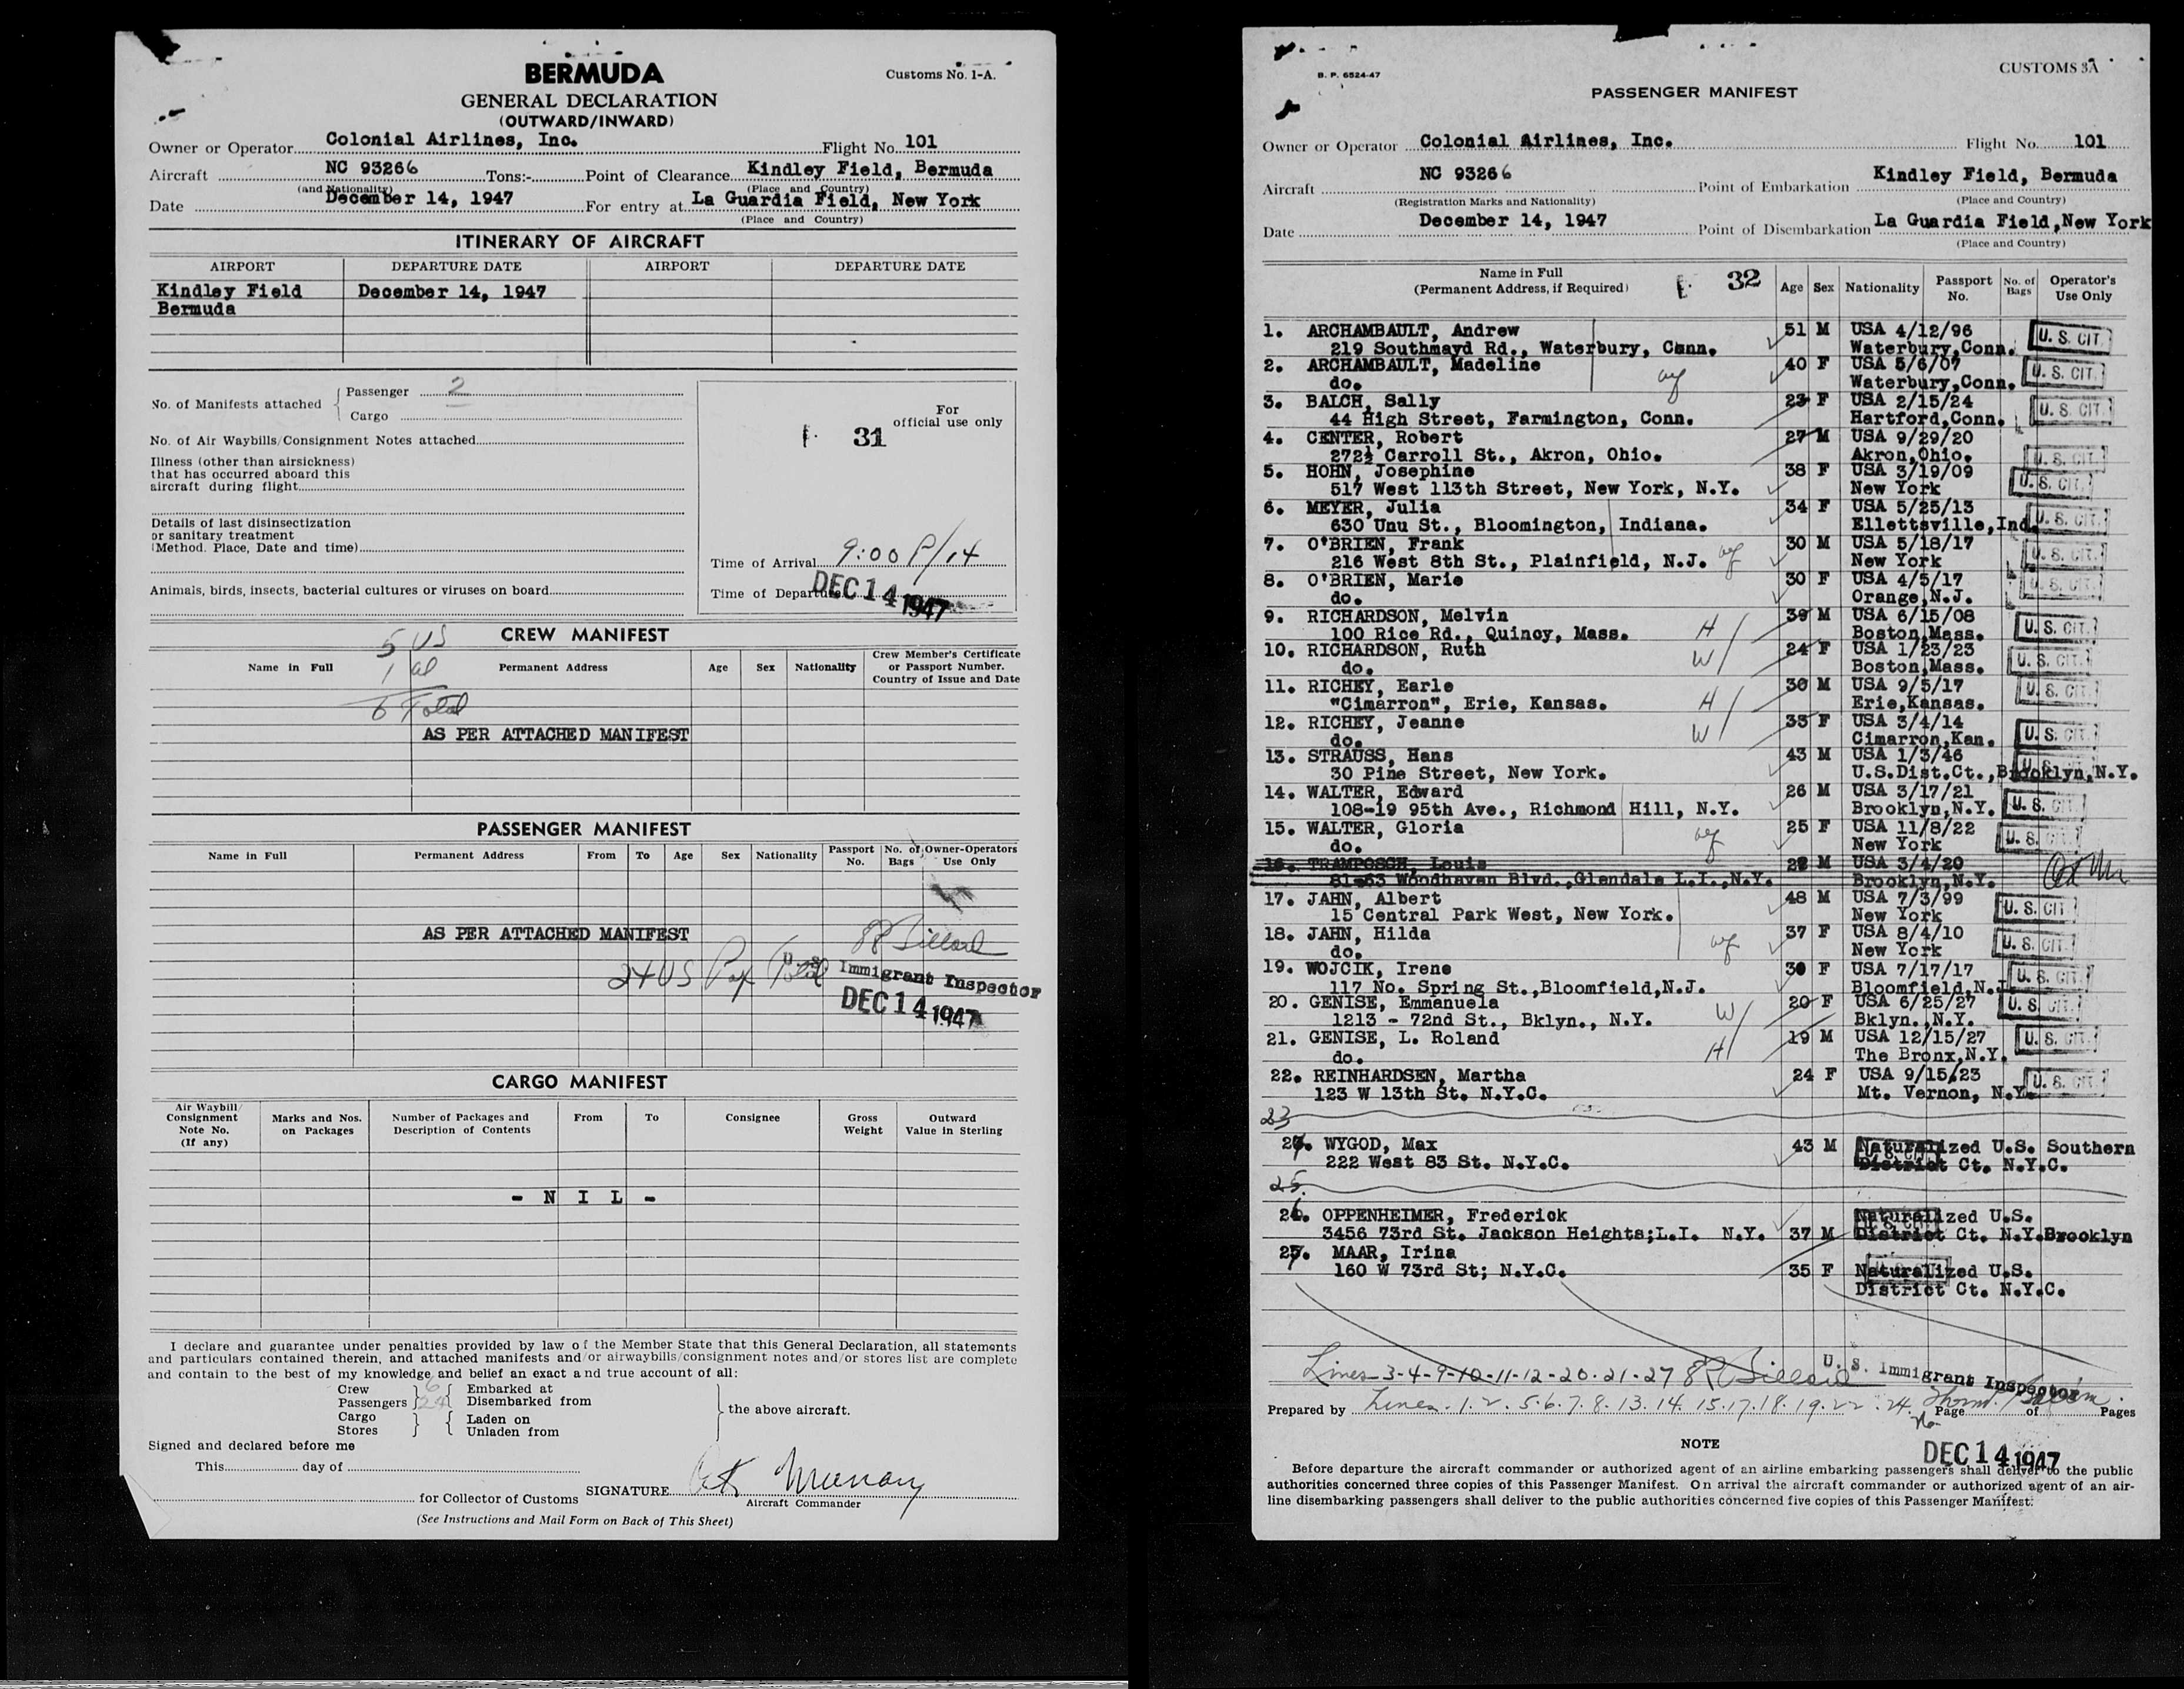 BERMUDA
Customs No. 1-A.
GENERAL DECLARATION
(OUTWARD/INWARD)
Owner or Operator Colonial Airlines, Inc. Flight No. 101
Aircraft NC 93266 Tons:- Point of Clearance Kindley Field, Bermuda
(and Nationality) (Place and Country)
Date December 14, 1947 For entry at La Guardia Field, New York
(Place and Country)
ITINERARY OF AIRCRAFT
AIRPORT DEPARTURE DATE AIRPORT DEPARTURE DATE
Kindley Field December 14, 1947
Bermuda
No. of Manifests attached { Passenger 2
Cargo
For
official use only
31
No. of Air Waybills/Consignment Notes attached
Illness (other than airsickness)
that has occurred aboard this
aircraft during flight
Details of last disinsectization
or sanitary treatment
(Method. Place, Date and time)
Time of Arrival 9:00 P/14
Animals, birds, insects, bacterial cultures or viruses on board
Time of Departure
DEC 14 1947
CREW MANIFEST
5 US
1 al
6 Total
Name in Full Permanent Address Age Sex Nationality Crew Member's Certificate
or Passport Number.
Country of Issue and Date
AS PER ATTACHED MANIFEST
PASSENGER MANIFEST
Name in Full Permanent Address From To Age Sex Nationality Passport No. No. of Bags Owner-Operators Use Only
AS PER ATTACHED MANIFEST
24 US Pax Total
U. S. Immigrant Inspector
DEC 14 1947
CARGO MANIFEST
Air Waybill/
Consignment
Note No.
(If any)
Marks and Nos.
on Packages
Number of Packages and
Description of Contents
From To Consignee
Gross
Weight
Outward
Value in Sterling
- N I L -
I declare and guarantee under penalties provided by law of the Member State that this General Declaration, all statements
and particulars contained therein, and attached manifests and/or airwaybills/consignment notes and/or stores list are complete
and contain to the best of my knowledge and belief an exact and true account of all:
Crew 6 Embarked at
Passengers 24 Disembarked from
the above aircraft.
Cargo Laden on
Stores Unladen from
Signed and declared before me
This day of
SIGNATURE
for Collector of Customs
Aircraft Commander
(See Instructions and Mail Form on Back of This Sheet)
B. P. 6524-47
CUSTOMS 3A
PASSENGER MANIFEST
Owner or Operator Colonial Airlines, Inc. Flight No. 101
Aircraft NC 93266 Point of Embarkation Kindley Field, Bermuda
(Registration Marks and Nationality) (Place and Country)
Date December 14, 1947 Point of Disembarkation La Guardia Field, New York
(Place and Country)
Name in Full
(Permanent Address, if Required)
32
Age Sex Nationality Passport No. No. of Bags Operator's Use Only
1. ARCHAMBAULT, Andrew 51 M USA 4/12/96 U. S. CIT.
219 Southmayd Rd., Waterbury, Conn. Waterbury,Conn.
2. ARCHAMBAULT, Madeline 40 F USA 5/6/07 U. S. CIT.
do. Waterbury,Conn.
3. BALCH, Sally 23 F USA 2/15/24 U. S. CIT.
44 High Street, Farmington, Conn. Hartford,Conn.
4. CENTER, Robert 27 M USA 9/29/20 U. S. CIT.
272½ Carroll St., Akron, Ohio. Akron,Ohio.
5. HOHN, Josephine 38 F USA 3/19/09 U. S. CIT.
517 West 113th Street, New York, N.Y. New York
6. MEYER, Julia 34 F USA 5/25/13 U. S. CIT.
630 Unu St., Bloomington, Indiana. Ellettsville,Ind.
7. O'BRIEN, Frank 30 M USA 5/18/17 U. S. CIT.
216 West 8th St., Plainfield, N.J. New York
8. O'BRIEN, Marie 30 F USA 4/5/17 U. S. CIT.
do. Orange,N.J.
9. RICHARDSON, Melvin H 39 M USA 6/15/08 U. S. CIT.
100 Rice Rd., Quincy, Mass. Boston,Mass.
10. RICHARDSON, Ruth W 24 F USA 1/23/23 U. S. CIT.
do. Boston,Mass.
11. RICHEY, Earle H 30 M USA 9/5/17 U. S. CIT.
"Cimarron", Erie, Kansas. Erie,Kansas.
12. RICHEY, Jeanne W 33 F USA 3/4/14 U. S. CIT.
do. Cimarron,Kan.
13. STRAUSS, Hans 43 M USA 1/3/46 U. S. CIT.
30 Pine Street, New York. U.S.Dist.Ct.,Brooklyn,N.Y.
14. WALTER, Edward 26 M USA 3/17/21 U. S. CIT.
108-19 95th Ave., Richmond Hill, N.Y. Brooklyn,N.Y.
15. WALTER, Gloria 25 F USA 11/8/22 U. S. CIT.
do. New York
16. TRAMPOSCH, Louis 28 M USA 3/4/20
81-63 Woodhaven Blvd.,Glendale L.I.,N.Y. Brooklyn,N.Y.
17. JAHN, Albert 48 M USA 7/3/99 U. S. CIT
15 Central Park West, New York. New York
18. JAHN, Hilda 37 F USA 8/4/10 U. S. CIT.
do. New York
19. WOJCIK, Irene 30 F USA 7/17/17 U. S. CIT.
117 No. Spring St.,Bloomfield,N.J. Bloomfield,N.J.
20. GENISE, Emmanuela W 20 F USA 6/25/27 U. S. CIT
1213 - 72nd St., Bklyn., N.Y. Bklyn.,N.Y.
21. GENISE, L. Roland H 19 M USA 12/15/27 U. S. CIT.
do. The Bronx,N.Y.
22. REINHARDSEN, Martha 24 F USA 9/15/23 U. S. CIT.
123 W 13th St. N.Y.C. Mt. Vernon, N.Y.
23
24. WYGOD, Max 43 M Naturalized U.S. Southern
222 West 83 St. N.Y.C. District Ct. N.Y.C.
25.
26. OPPENHEIMER, Frederick Naturalized U.S.
3456 73rd St. Jackson Heights;L.I. N.Y. 37 M District Ct. N.Y.Brooklyn
27. MAAR, Irina
160 W 73rd St; N.Y.C. 35 F Naturalized U.S.
District Ct. N.Y.C.
Lines-3-4-9-10-11-12-20-21-27 U. S. Immigrant Inspector
Prepared by Lines. 1. 2. 5. 6. 7. 8. 13. 14. 15. 17. 18. 19. 22. 24. Page of Pages
NOTE
DEC 14 1947
Before departure the aircraft commander or authorized agent of an airline embarking passengers shall deliver to the public
authorities concerned three copies of this Passenger Manifest. On arrival the aircraft commander or authorized agent of an air-
line disembarking passengers shall deliver to the public authorities concerned five copies of this Passenger Manifest.